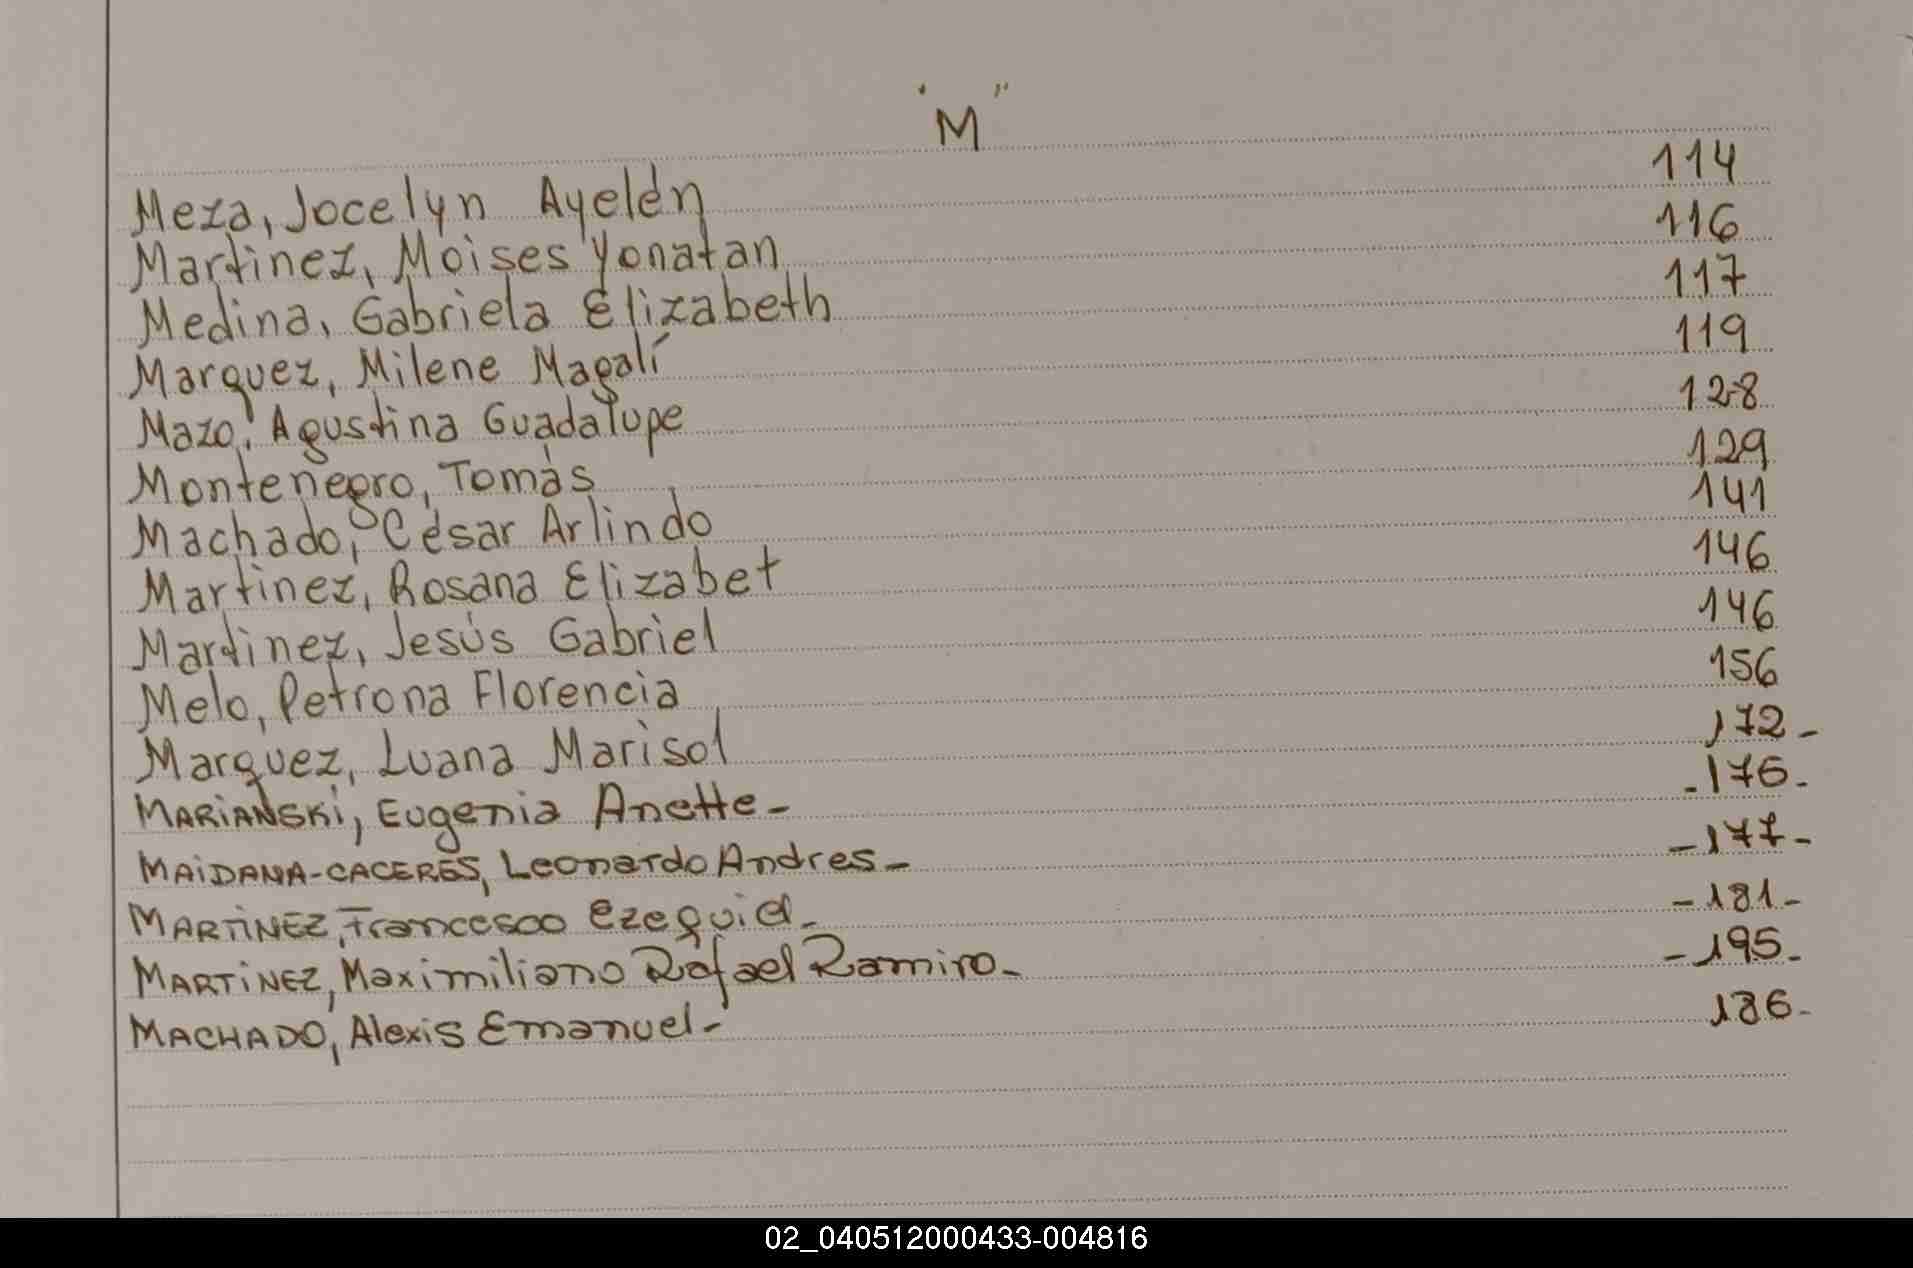 "M"
Meza, Jocelyn Ayelén 114
Martinez, Moises Yonatan 116
Medina, Gabriela Elizabeth 117
Marquez, Milene Magalí 119
Mazo, Agustina Guadalupe 128
Montenegro, Tomás 129
Machado, César Arlindo 141
Martinez, Rosana Elizabet 146
Martinez, Jesús Gabriel 146
Melo, Petrona Florencia 156
Marquez, Luana Marisol 172-
MARIANSKI, Eugenia Anette- -176-
MAIDANA-CACERES, Leonardo Andres- -177-
MARTINEZ, Francesco Ezequiel- -181-
MARTINEZ, Maximiliano Rafael Ramiro- -195-
MACHADO, Alexis Emanuel- 186-
02_040512000433-004816